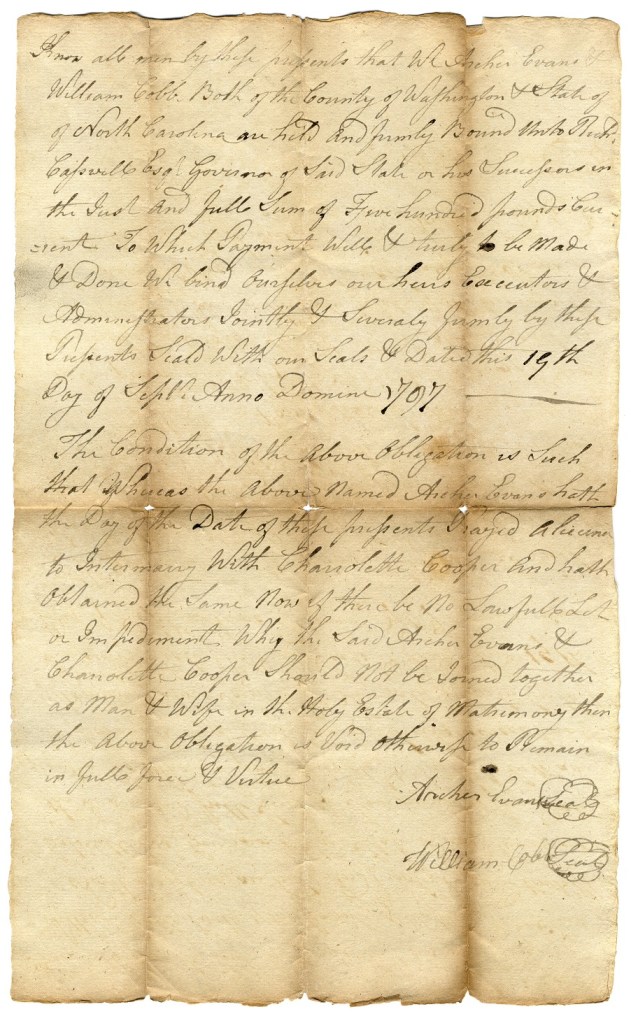 Know all men by these presents that We Archer Evans &
William Cobb Both of the County of Washington & State of
of North Carolina are held and firmly Bound Unto Richd
Casswell Esqr Governor of Said State or his Successors in
the Just and full Sum of Five hundred pounds Cur-
-rent To Which Payment Well & truly to be Made
& Done We bind Ourselves our heirs Executors &
Administrators Jointly & Severaly firmly by these
Presents Seald With our Seals & Dated this 19th
Day of Septr Anno Domine
The Condition of the Above Obligation is Such
that Whereas the Above Named Archer Evans hath
the Day of the Date of these presents Prayed a
to Intermarry With Charolotte Cooper And hath
Obtained the Same Now if there be No Lawfull Let
or Impediment Why the Said Archer Evans &
Charolotte Cooper Should Not be Joined together
as Man & Wife in the Holy Estate of Matrimony then
the Above Obligation is Void Otherwise to Remain
in full force & Virtue
Archer Evans Seal
William Cobb Seal